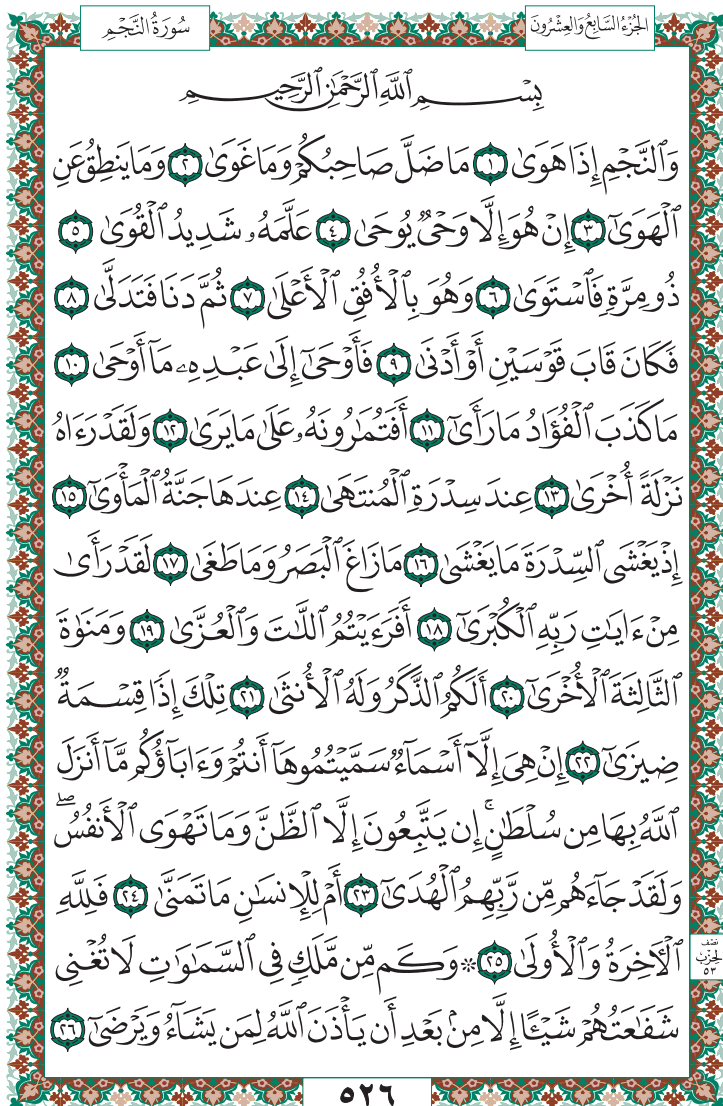 الجُزْءُ السَّابِعُ وَالعِشْرُونَ
سُورَةُ النَّجْمِ
بِسْمِ ٱللَّهِ ٱلرَّحْمَٰنِ ٱلرَّحِيمِ
وَٱلنَّجْمِ إِذَا هَوَىٰ ١ مَا ضَلَّ صَاحِبُكُمْ وَمَا غَوَىٰ ٢ وَمَا يَنطِقُ عَنِ
ٱلْهَوَىٰٓ ٣ إِنْ هُوَ إِلَّا وَحْىٌ يُوحَىٰ ٤ عَلَّمَهُۥ شَدِيدُ ٱلْقُوَىٰ ٥
ذُو مِرَّةٍ فَٱسْتَوَىٰ ٦ وَهُوَ بِٱلْأُفُقِ ٱلْأَعْلَىٰ ٧ ثُمَّ دَنَا فَتَدَلَّىٰ ٨
فَكَانَ قَابَ قَوْسَيْنِ أَوْ أَدْنَىٰ ٩ فَأَوْحَىٰٓ إِلَىٰ عَبْدِهِۦ مَآ أَوْحَىٰ ١٠
مَا كَذَبَ ٱلْفُؤَادُ مَا رَأَىٰٓ ١١ أَفَتُمَٰرُونَهُۥ عَلَىٰ مَا يَرَىٰ ١٢ وَلَقَدْ رَءَاهُ
نَزْلَةً أُخْرَىٰ ١٣ عِندَ سِدْرَةِ ٱلْمُنتَهَىٰ ١٤ عِندَهَا جَنَّةُ ٱلْمَأْوَىٰٓ ١٥
إِذْ يَغْشَى ٱلسِّدْرَةَ مَا يَغْشَىٰ ١٦ مَا زَاغَ ٱلْبَصَرُ وَمَا طَغَىٰ ١٧ لَقَدْ رَأَىٰ
مِنْ ءَايَٰتِ رَبِّهِ ٱلْكُبْرَىٰٓ ١٨ أَفَرَءَيْتُمُ ٱللَّٰتَ وَٱلْعُزَّىٰ ١٩ وَمَنَوٰةَ
ٱلثَّالِثَةَ ٱلْأُخْرَىٰٓ ٢٠ أَلَكُمُ ٱلذَّكَرُ وَلَهُ ٱلْأُنثَىٰ ٢١ تِلْكَ إِذًا قِسْمَةٌ
ضِيزَىٰٓ ٢٢ إِنْ هِىَ إِلَّآ أَسْمَآءٌ سَمَّيْتُمُوهَآ أَنتُمْ وَءَابَآؤُكُم مَّآ أَنزَلَ
ٱللَّهُ بِهَا مِن سُلْطَٰنٍ ۚ إِن يَتَّبِعُونَ إِلَّا ٱلظَّنَّ وَمَا تَهْوَى ٱلْأَنفُسُ ۖ
وَلَقَدْ جَآءَهُم مِّن رَّبِّهِمُ ٱلْهُدَىٰٓ ٢٣ أَمْ لِلْإِنسَٰنِ مَا تَمَنَّىٰ ٢٤ فَلِلَّهِ
ٱلْـَٔاخِرَةُ وَٱلْأُولَىٰ ٢٥ ۞ وَكَم مِّن مَّلَكٍ فِى ٱلسَّمَٰوَٰتِ لَا تُغْنِى
نصف
الحزب
٥٣
شَفَٰعَتُهُمْ شَيْـًٔا إِلَّا مِنۢ بَعْدِ أَن يَأْذَنَ ٱللَّهُ لِمَن يَشَآءُ وَيَرْضَىٰٓ ٢٦
٥٢٦